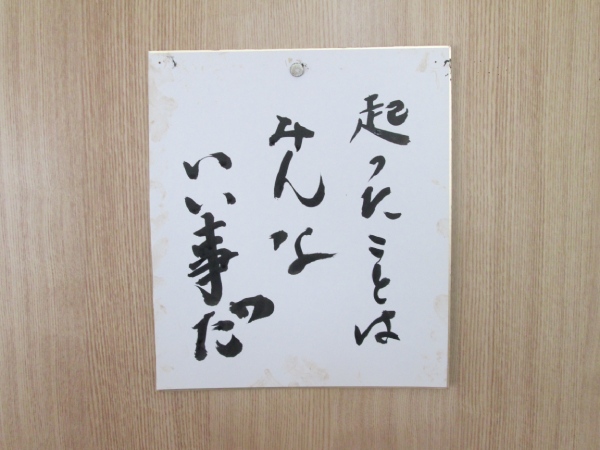 起ったことは
みんな
いい事だ